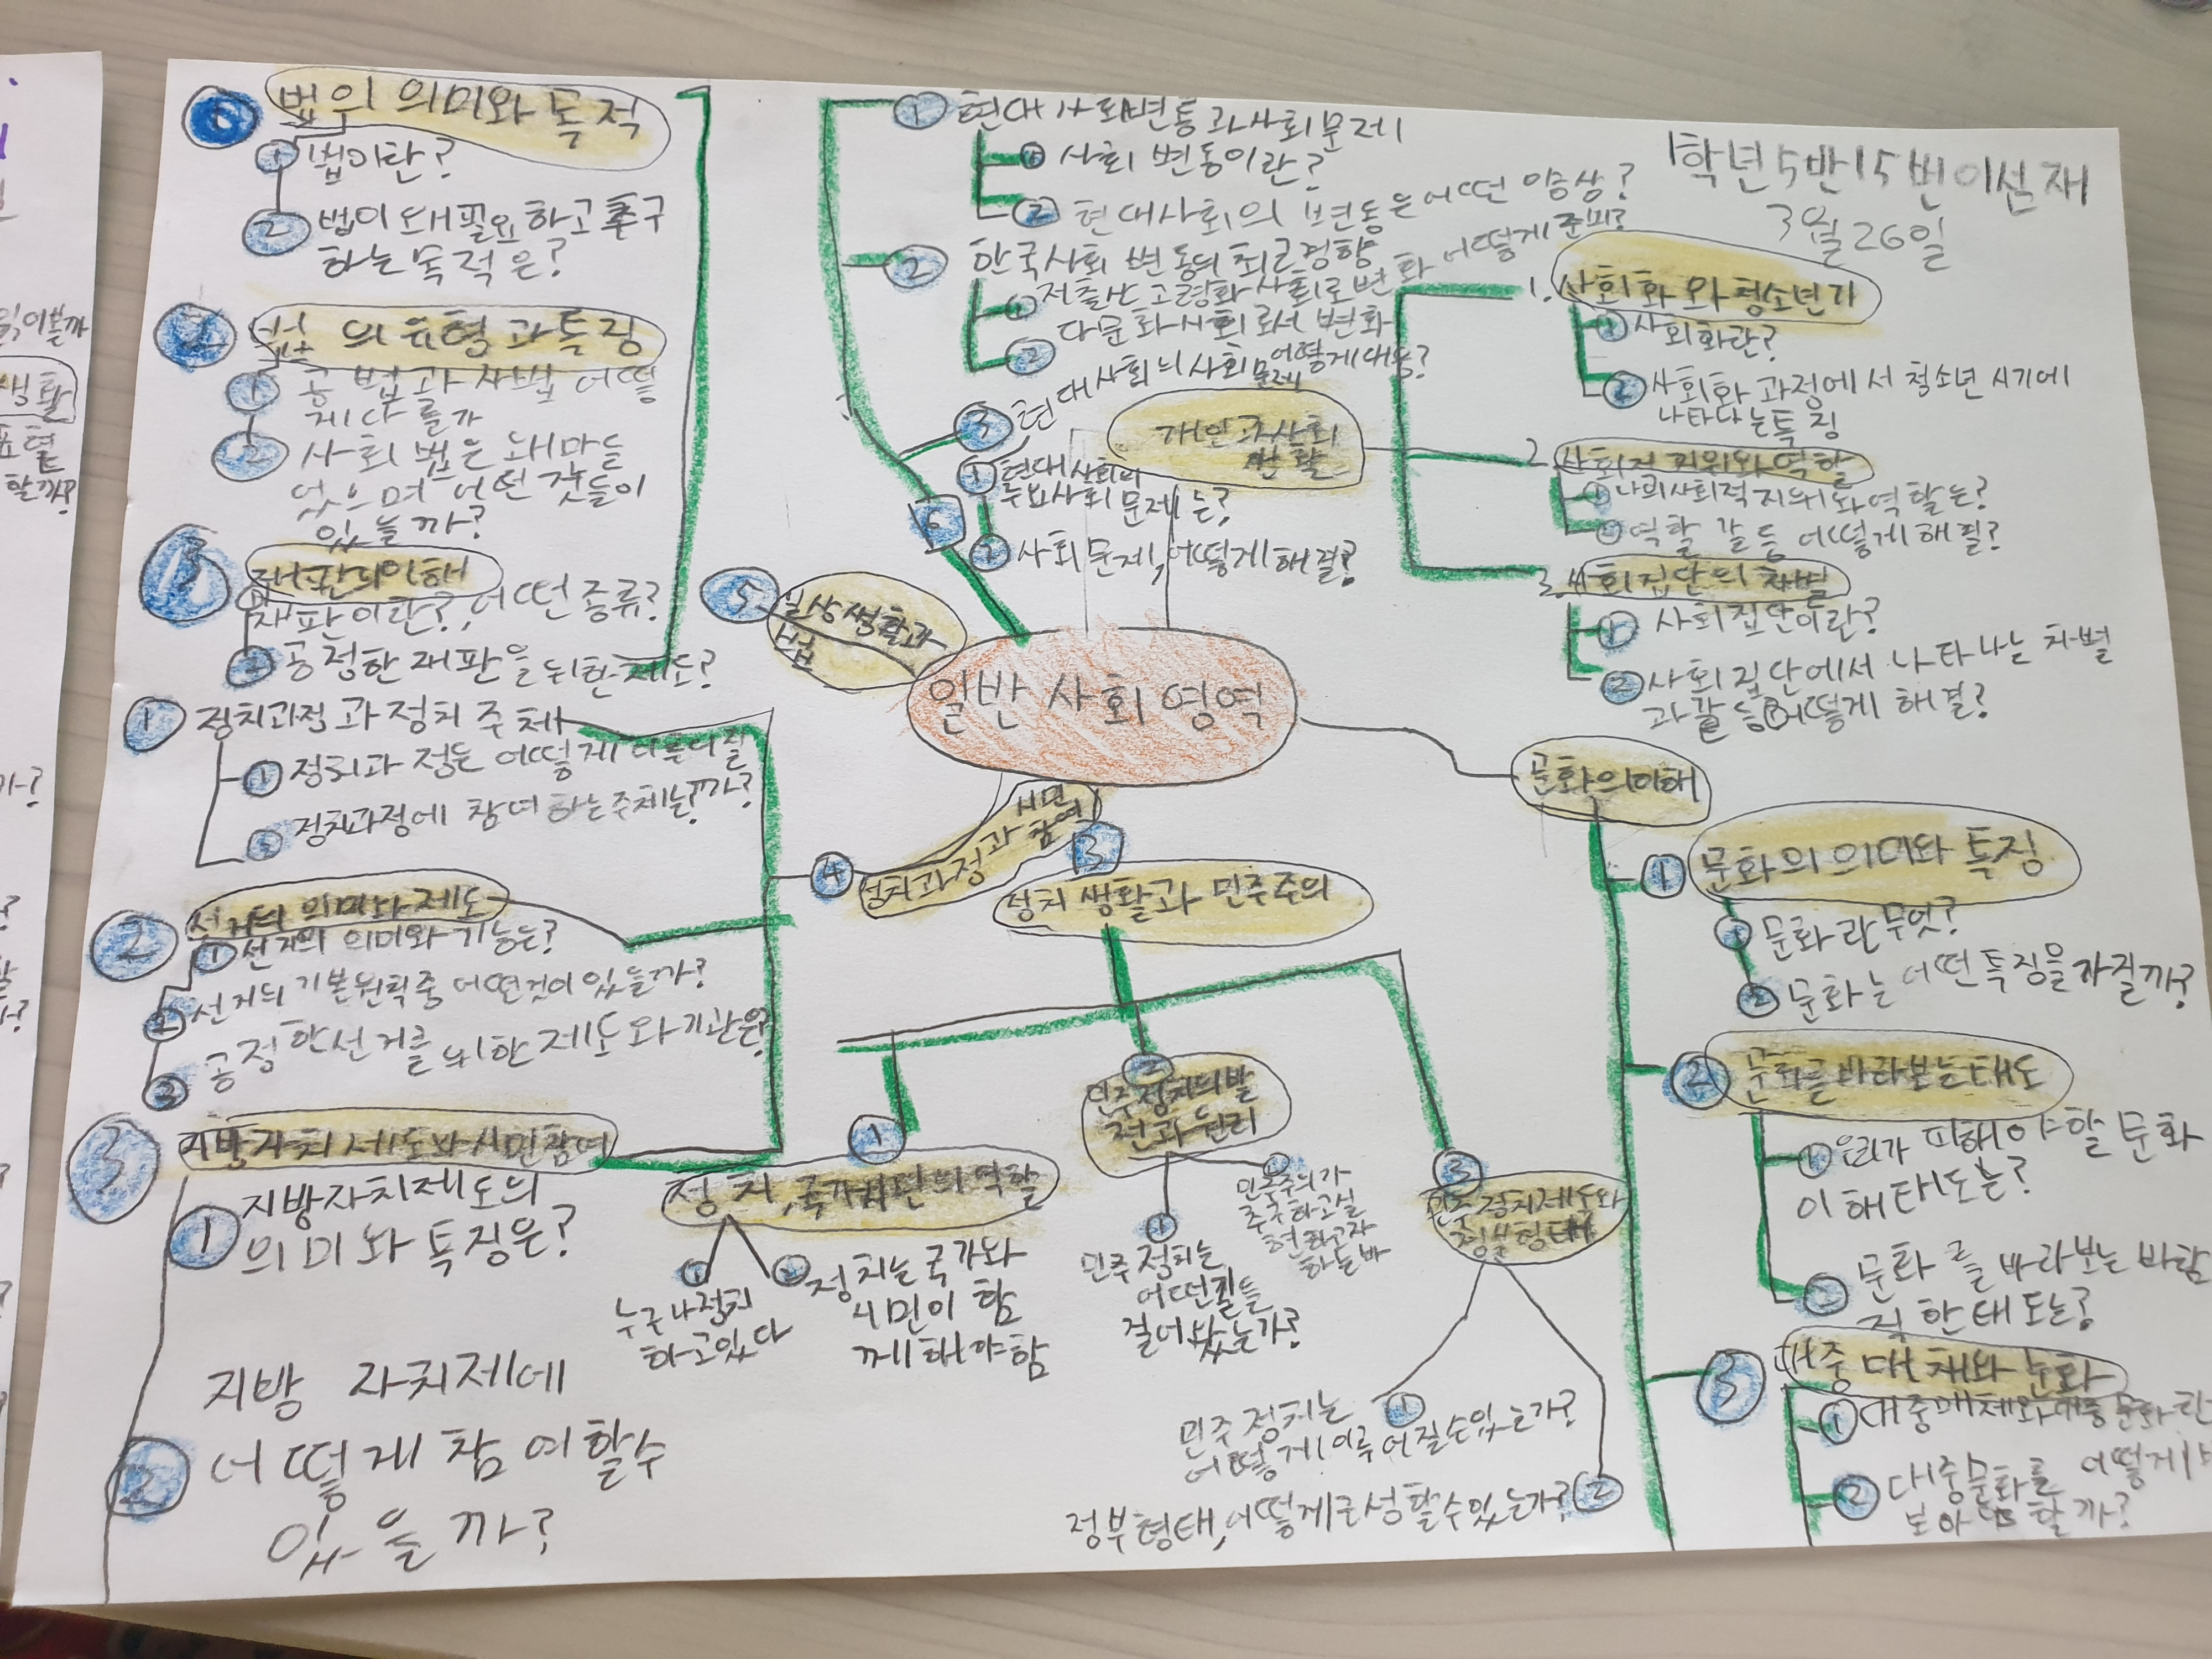 일반 사회 영역
1학년 5반 15번
3월 26일
개인과 사회
생활
1. 사회화와 청소년기
① 사회화란?
② 사회화 과정에서 청소년 시기에
나타나는 특징
2. 사회적 지위와 역할
① 나의 사회적 지위와 역할는?
② 역할 갈등 어떻게 해결?
3. 사회집단의 차별
① 사회집단이란?
② 사회 집단에서 나타나는 차별
과 갈등 어떻게 해결?
문화의 이해
① 문화의 의미와 특징
① 문화란 무엇?
② 문화는 어떤 특징을 가질까?
② 문화를 바라보는 태도
① 우리가 피해야 할 문화
이해 태도는?
② 문화를 바라보는 바람
직 한 태도는?
③ 대중 매체와 문화
① 대중매체와 대중문화란
② 대중문화를 어떻게 바
보아야 할까?
③
정치 생활과 민주주의
①
정치, 국가시민의 역할
① 누구나 정치
하고 있다
② 정치는 국가와
시민이 함
께 해야 함
②
민주 정치의 발
전과 원리
① 민주 정치는
어떤 길을
걸어 왔는가?
② 민주주의가
추구하고 실
현하고자
하는 바
③
민주 정치 제도와
정부 형태
① 민주 정치는
어떻게 이루어질 수 있는가?
② 정부 형태, 어떻게 구성할 수 있는가?
④ 정치과정과 시민
참여
① 정치과정과 정치 주체
① 정치과정은 어떻게 이루어질
까?
② 정치과정에 참여하는 주체는?
② 선거의 의미와 제도
① 선거의 의미와 기능은?
② 선거의 기본원칙 중 어떤것이 있을까?
③ 공정한 선거를 위한 제도와 기관은?
③ 지방자치 제도와 시민 참여
① 지방자치제도의
의미와 특징은?
② 지방 자치제에
어떻게 참여할수
있을까?
⑤ 일상생활과
법
법의 의미와 목적
① 법이란?
② 법이 왜 필요하고 추구
하는 목적은?
② 법의 유형과 특징
① 공법과 사법 어떻
게 다를가
② 사회법은 왜 마들
었으며 어떤 것들이
있을까?
③ 재판의 이해
① 재판이란?, 어떤 종류?
② 공정한 재판을 위한 제도?
⑥
① 현대 사회변동과 사회 문제
① 사회 변동이란?
② 현대사회의 변동은 어떤 양상?
② 한국사회 변동의 최근경향
① 저출산 고령화 사회로 변화 어떻게 준비?
② 다문화사회로서 변화
어떻게 대응?
③ 현대사회의 사회 문제
① 현대사회의
주요 사회 문제는?
② 사회 문제, 어떻게 해결?